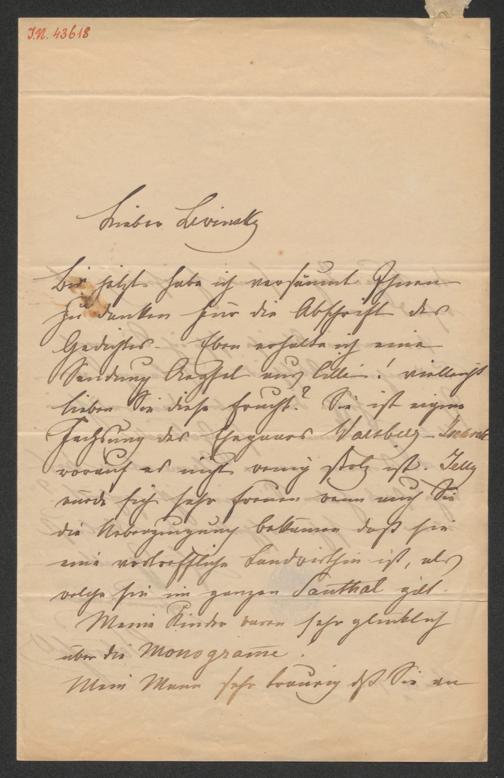 I.N. 43618
Lieber Lewinsky
Bis jetzt habe ich versäumt Ihnen
zu danken für die Abschrift des
Gedichtes. Eben erhalte ich eine
Sendung Aepfel aus Cilli! vielleicht
lieben Sie diese Frucht? Sie ist eigene
Fechsung des Ehepaares
worauf es nicht wenig stolz ist. Jelly
würde sich sehr freuen wenn auch Sie
die Ueberzeugung bekämen daß sie
eine vortreffliche Landwirthin ist, als
welche sie im ganzen Santhal gilt.
Meine Kinder waren sehr glücklich
über die Monogramme.
Mein Mann sehr traurig daß Sie an